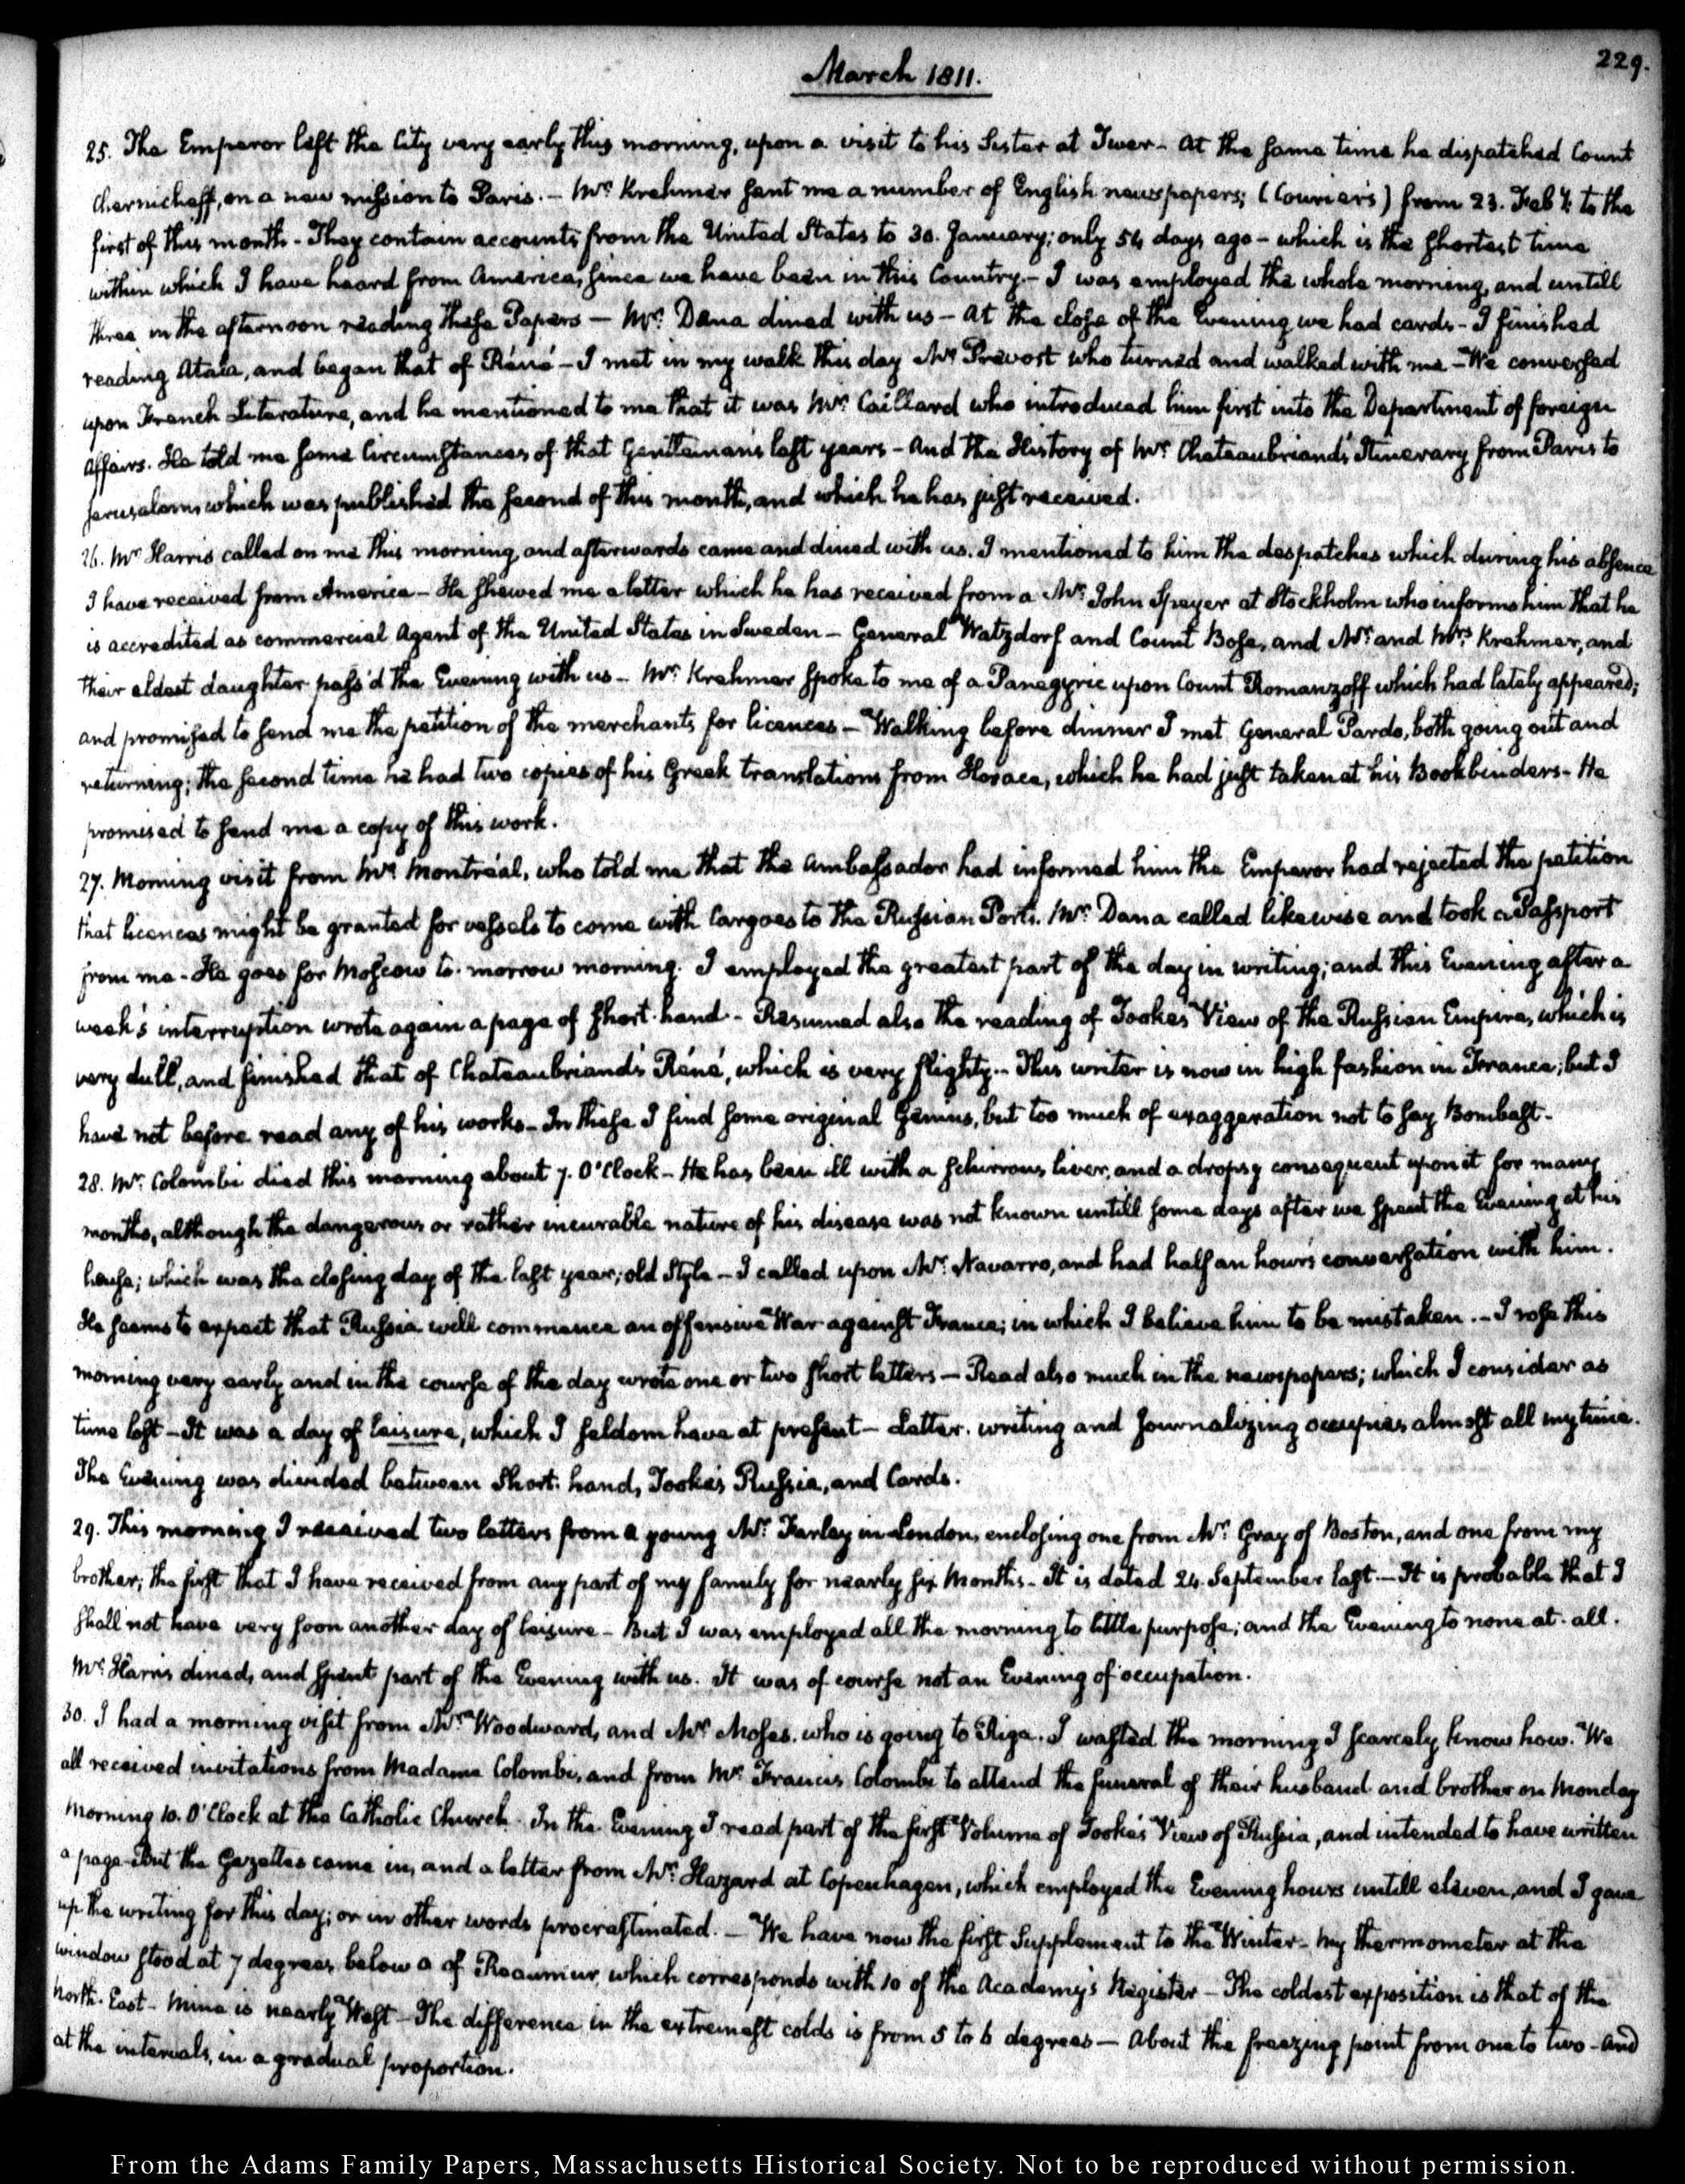 229.
March 1811.
25. The Emperor left the City very early this morning, upon a visit to his Sister at Twer - At the same time he dispatched Count
Chernicheff, on a new mission to Paris. - Mr. Krehmer sent me a number of English newspapers; (Couriers) from 23. Feby. to the
first of this month - They contain accounts from the United States to 30. January; only 54 days ago - which is the shortest time
within which I have heard from America, since we have been in this Country. - I was employed the whole morning, and untill
three in the afternoon reading these Papers — Mr. Dana dined with us - At the close of the Evening we had cards - I finished
reading Atala, and began that of Réné - I met in my walk this day Mr. Prevost who turned and walked with me - We conversed
upon French Literature, and he mentioned to me that it was Mr. Caillard who introduced him first into the Department of foreign
affairs. He told me some Circumstances of that Gentleman's last years - And the History of Mr. Chateaubriand's Itinerary from Paris to
Jerusalem, which was published the second of this month, and which he has just received.
26. Mr. Harris called on me this morning, and afterwards came and dined with us. I mentioned to him the despatches which during his absence
I have received from America - He shewed me a letter which he has received from a Mr. John Speyer at Stockholm who informs him that he
is accredited as commercial Agent of the United States in Sweden - General Watzdorf and Count Bose, and Mr. and Mrs. Krehmer, and
their eldest daughter pass'd the Evening with us - Mr. Krehmer spoke to me of a Panegyric upon Count Romanzoff which had lately appeared;
and promised to send me the petition of the merchants for licences - Walking before dinner I met General Pardo, both going out and
returning; the second time he had two copies of his Greek translations from Horace, which he had just taken at his Bookbinders - He
promised to send me a copy of this work.
27. Morning visit from Mr. Montréal, who told me that the Ambassador had informed him the Emperor had rejected the petition
that licences might be granted for vessels to come with Cargoes to the Russian Ports. Mr. Dana called likewise and took a Passport
from me - He goes for Moscow to-morrow morning. I employed the greatest part of the day in writing; and this Evening after a
week's interruption wrote again a page of short-hand - Resumed also the reading of Tooke's View of the Russian Empire, which is
very dull, and finished that of Chateaubriand's Réné, which is very flighty. - This writer is now in high fashion in France; but I
have not before read any of his works - In these I find some original Genius, but too much of exaggeration not to say Bombast -
28. Mr. Colombi died this morning about 7. O'Clock - He has been ill with a schirrous liver, and a dropsy consequent upon it for many
months, although the dangerous or rather incurable nature of his disease was not known untill some days after we spent the Evening at his
house; which was the closing day of the last year; old Style - I called upon Mr. Navarro, and had half an hour's conversation with him.
He seems to expect that Russia will commence an offensive War against France; in which I believe him to be mistaken. - I rose this
morning very early and in the course of the day wrote one or two short letters — Read also much in the newspapers; which I consider as
time lost - It was a day of leisure, which I seldom have at present - Letter-writing and Journalizing occupies almost all my time.
The Evening was divided between Short-hand, Tooke's Russia, and Cards.
29. This morning I received two letters from a young Mr. Farley in London, enclosing one from Mr. Gray of Boston, and one from my
brother; the first that I have received from any part of my family for nearly six Months - It is dated 24 September last - It is probable that I
shall not have very soon another day of leisure - But I was employed all the morning to little purpose; and the Evening to none at-all.
Mr. Harris dined, and spent part of the Evening with us. It was of course not an Evening of occupation.
30. I had a morning visit from Mr. Woodward, and Mr. Moses, who is going to Riga. I wasted the morning I scarcely know how. We
all received invitations from Madame Colombi, and from Mr. Francis Colombi to attend the funeral of their husband and brother on Monday
Morning 10. O'Clock at the Catholic Church. In the Evening I read part of the first Volume of Tooke's View of Russia, and intended to have written
a page - But the Gazettes came in, and a letter from Mr. Hazard at Copenhagen, which employed the Evening hours untill eleven, and I gave
up the writing for this day; or in other words procrastinated. — We have now the first Supplement to the Winter - My thermometer at the
window stood at 7 degrees below 0 of Reaumur, which corresponds with 10 of the Academy's Register - The coldest exposition is that of the
North-East - Mine is nearly West - The difference in the extremest colds is from 5 to 6 degrees — About the freezing point from one to two - And
at the intervals, in a gradual proportion.
From the Adams Family Papers, Massachusetts Historical Society. Not to be reproduced without permission.